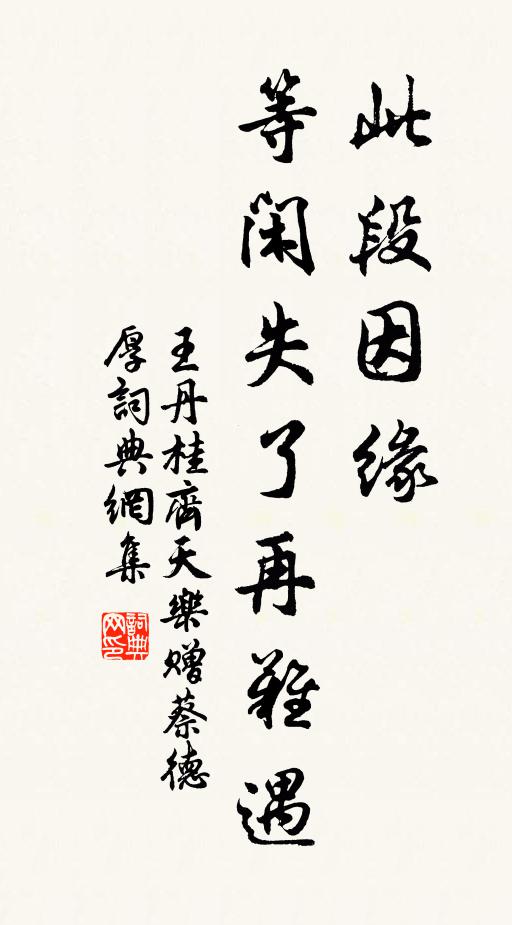 此段因緣
等閑失了再難遇
王丹桂齊天樂贈蔡德
厚詞典網集
詞典
网印